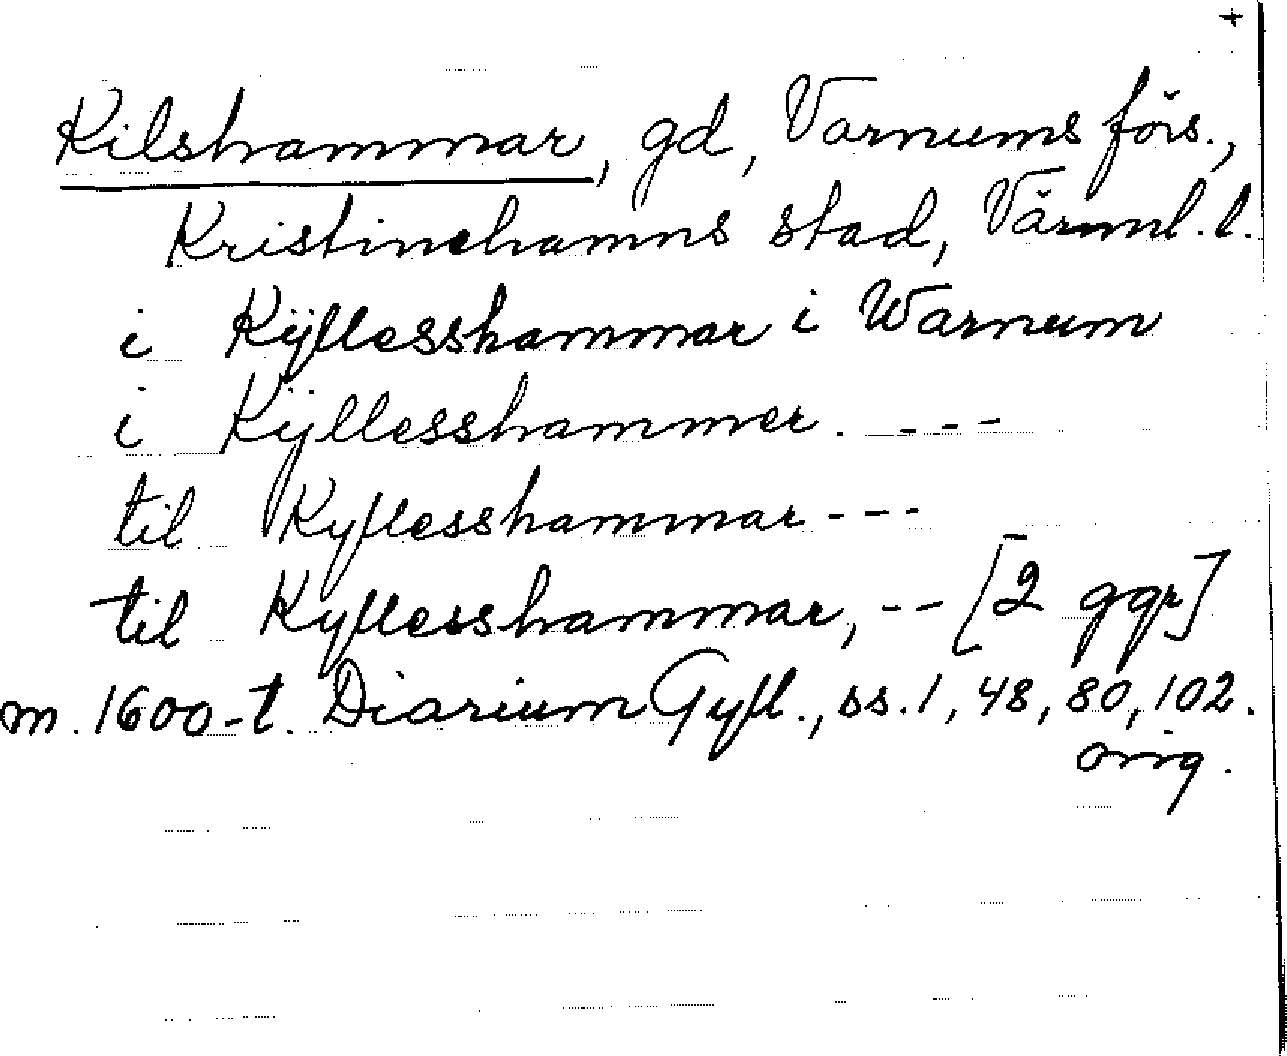 +
Kilshammar, gd, Varnums förs.,
Kristinehamns stad, Värml. l.
i Kÿllesshammar i Warnum
i Kÿllesshammer. - - -
til Kyllesshammar - - -
til Kyllesshammar, - - [2 ggr]
m. 1600-t. Diarium Gyll., ss. 1, 48, 80, 102.
orig.